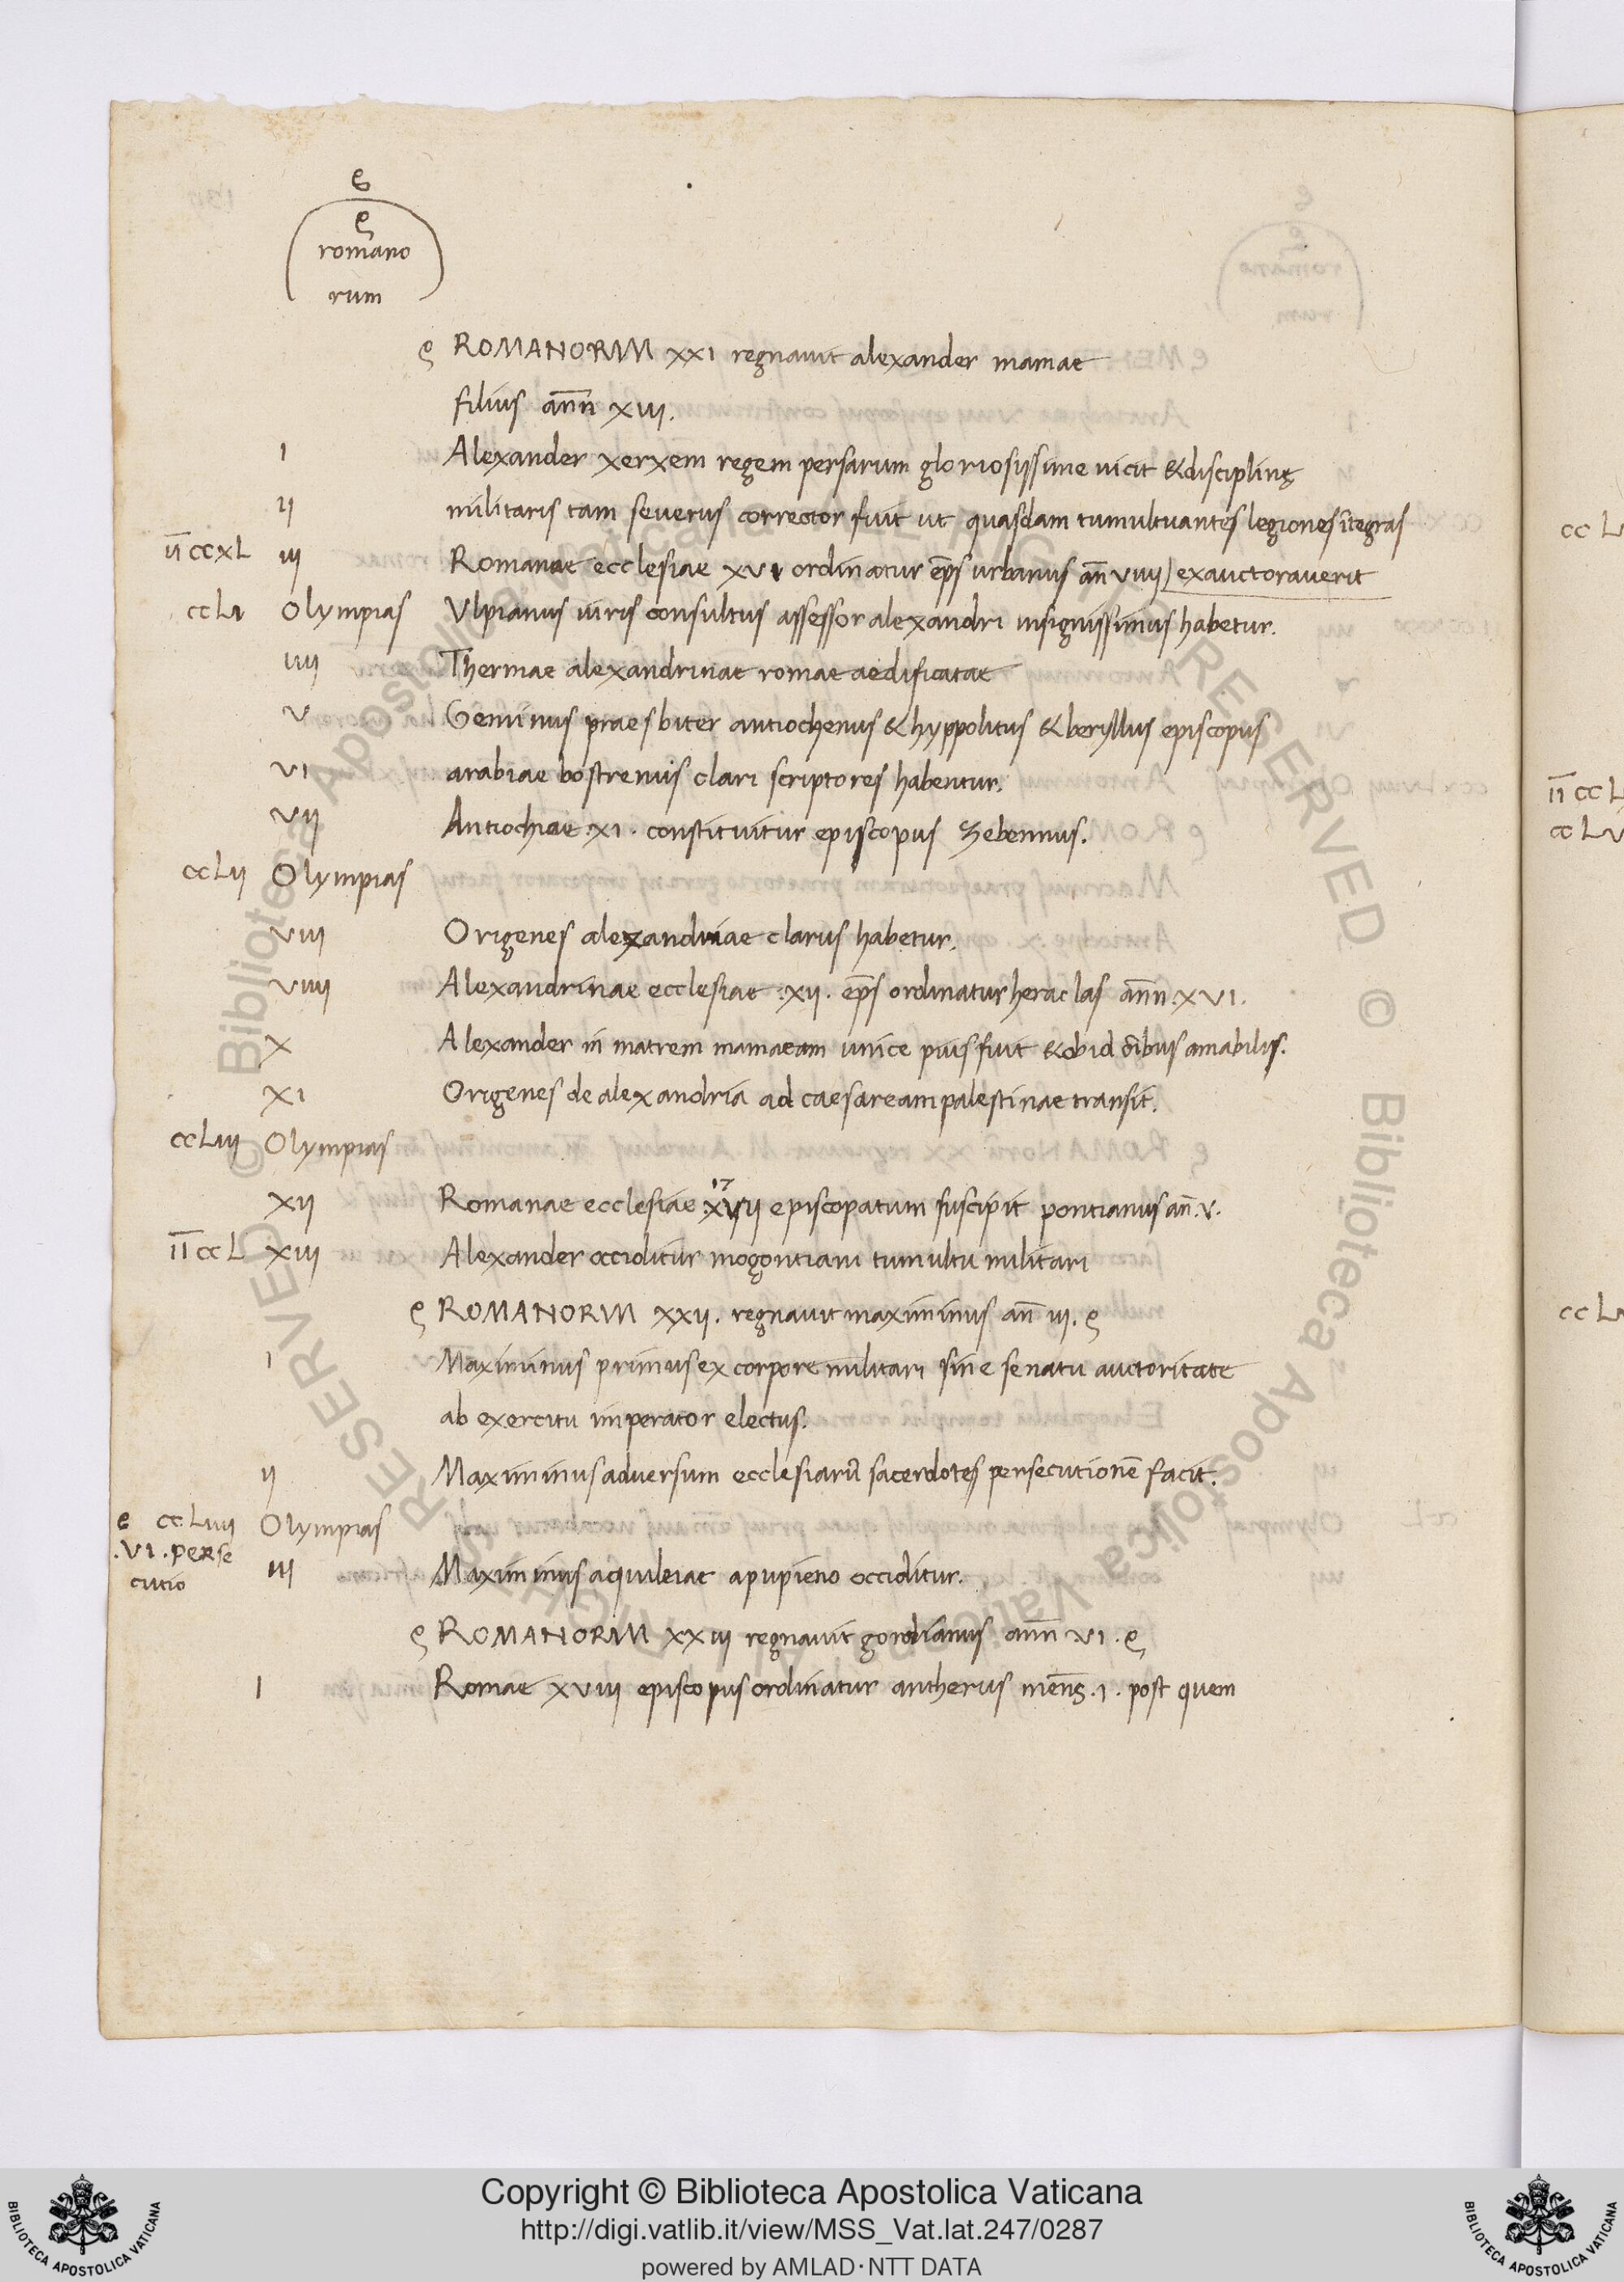 romano
rum
ROMANORUM XXI regnauit alexander mamae
filius annn XIII.
I Alexander xerxem regem persarum gloriosissime uicit & disciplinę
II militaris tam seuerus corrector fuit ut quasdam tumultuantes legiones ītegras
II CCXL III Romanae ecclesiae XVI ordinatur eps urbanus ann VIIII / exauctorauerit
CCLI Olympias Vlpianus iuris consultus assessor alexandri insignissimus habetur.
IIII Thermae alexandrinae romae aedificatae
V Geminus praesbiter antiochenus & hyppolitus & beryllus episcopus
VI arabiae bostrenus clari scriptores habentur.
VII Antiochiae .XI. constituitur episcopus Zebennus.
CCLII Olympias
VIII Origenes alexandriae clarus habetur.
VIIII Alexandrinae ecclesiae .XII. eps ordinatur heraclas annn .XVI.
X Alexander in matrem mamaeam unice pius fuit & ob id oībus amabilis.
XI Origenes de alexandria ad caesaream palestinae transit.
CCLIII Olympias
17
XII Romanae ecclesiae XVII episcopatum suscipit pontianus an̄ .V.
II CCL XIII Alexander occiditur mogontiaci tumultu militari
ROMANORUM XXII. regnauit maximinus an̄ III.
I Maximinus primus ex corpore militari sine senatu auctoritate
ab exercitu imperator electus.
II Maximinus aduersum ecclesiarū sacerdotes persecutionē facit.
CCLIIII Olympias
.VI. perse
cutio
III Maximinus aquileiae a pupieno occiditur.
ROMANORUM XXIII regnauit gordianus annn VI.
I Romae XVIII episcopus ordinatur antherus mens .I. post quem
CC L
II CC L
CC LV
CC L
Copyright © Biblioteca Apostolica Vaticana
http://digi.vatlib.it/view/MSS_Vat.lat.247/0287
powered by AMLAD·NTT DATA
BIBLIOTECA APOSTOLICA VATICANA
BIBLIOTECA APOSTOLICA VATICANA